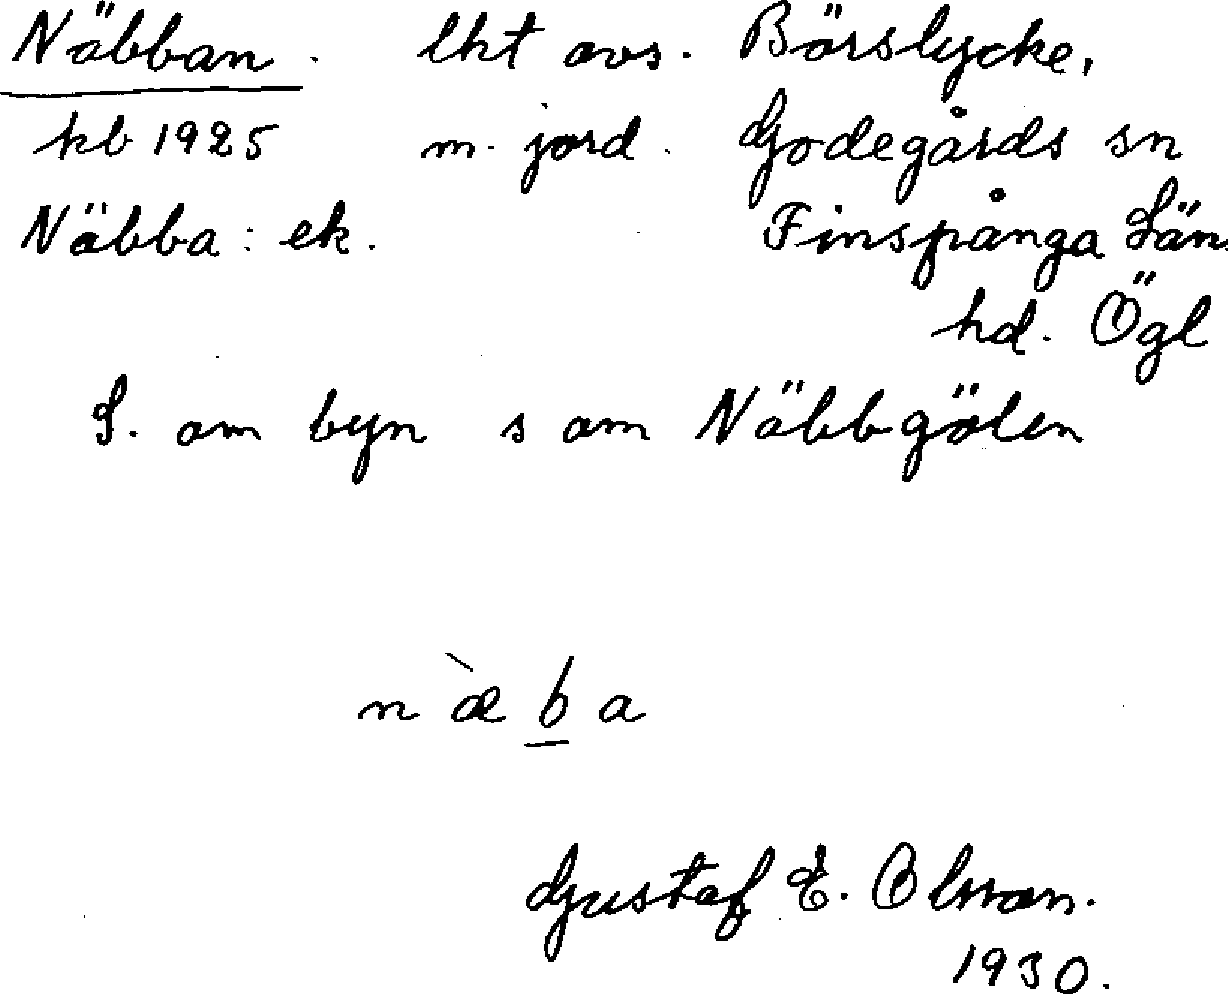 Näbban. lht avs. Börslycke,
kb 1925 m. jord. Godegårds sn
Näbba: ek. Finspånga Län
hd. Ögl
S. om byn s om Näbbgölen
n æ̀ b a
Gustaf E. Olsson.
1930.